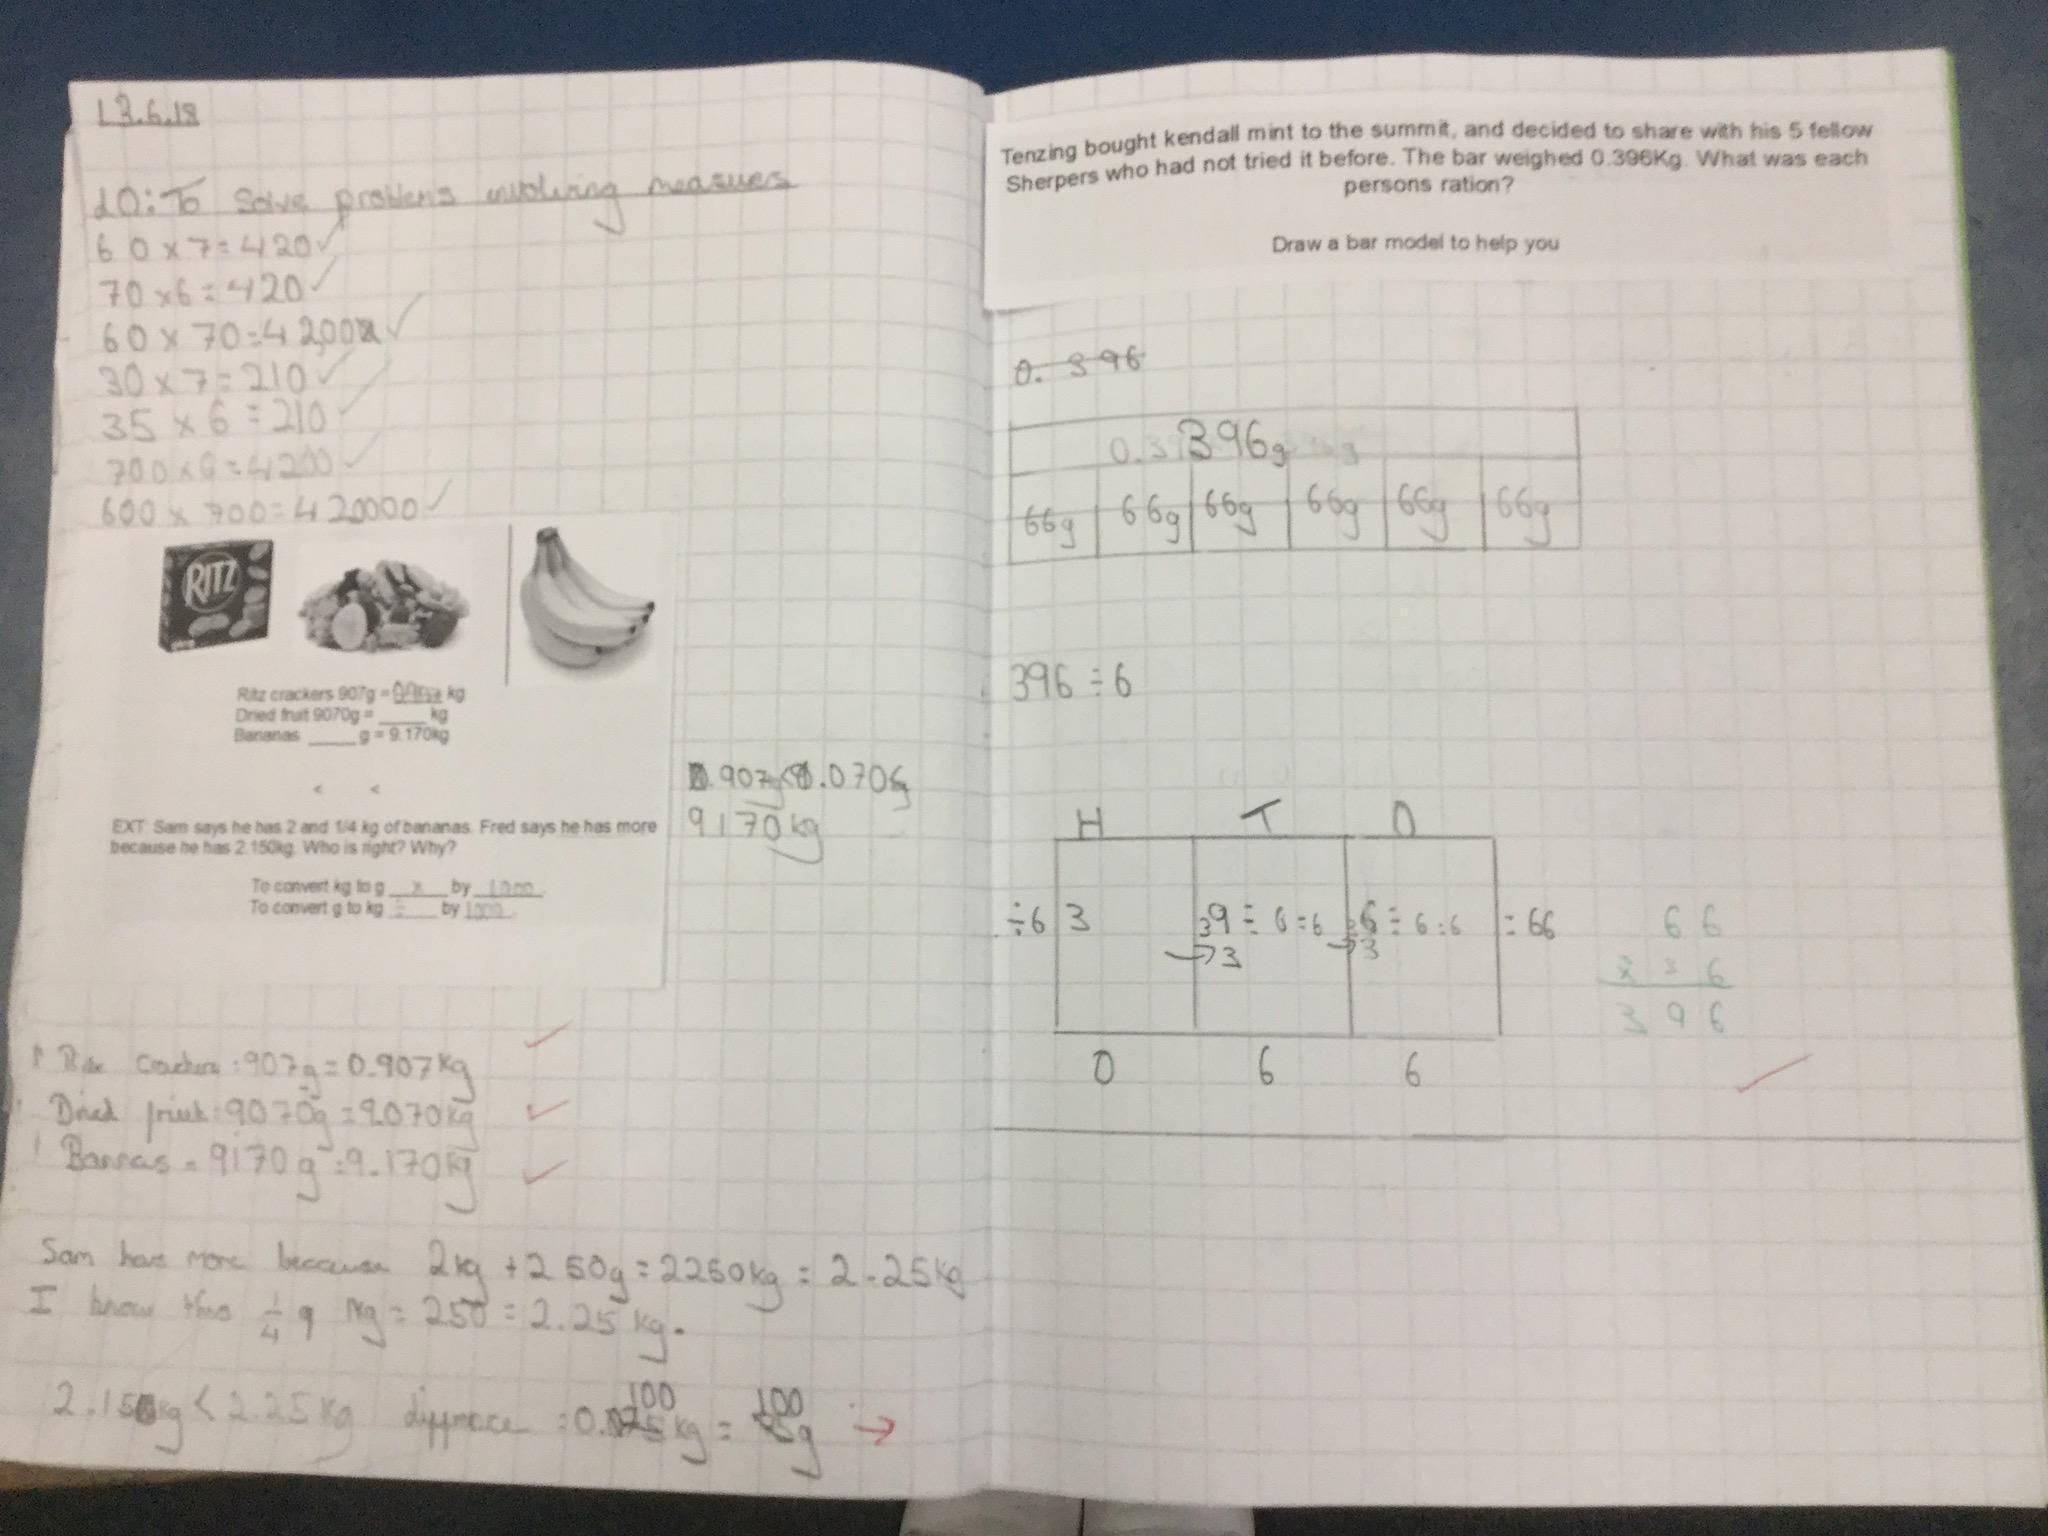 13.6.18
LO: To solve problems involving measures
60 x 7 = 420 ✓
70 x 6 = 420 ✓
60 x 70 = 4200 ✓
30 x 7 = 210 ✓
35 x 6 = 210 ✓
700 x 6 = 4200 ✓
600 x 700 = 420000 ✓
RITZ
Ritz crackers 907g = kg
Dried fruit 9070g = ____ kg
Bananas ____ g = 9.170kg
< <
0.907g < 9.070kg
9170kg
EXT: Sam says he has 2 and 1/4 kg of bananas. Fred says he has more
because he has 2.150kg. Who is right? Why?
To convert kg to g x by 1000
To convert g to kg ÷ by 1000
crackers: 907g = 0.907kg ✓
Dried fruit: 9070g = 9.070kg ✓
Bannas = 9170g = 9.170kg ✓
Sam has more because 2kg + 250g = 2250kg = 2.25kg
I know this 1/4 g kg = 250 = 2.25kg.
2.150kg < 2.25kg = 0.100kg = 100g →
Tenzing bought kendall mint to the summit, and decided to share with his 5 fellow
Sherpers who had not tried it before. The bar weighed 0.396Kg. What was each
persons ration?
Draw a bar model to help you
0.396
396g
66g 66g 66g 66g 66g 66g
396 ÷ 6
H T O
÷6 3 39 ÷ 6 = 6 36 ÷ 6 = 6 = 66
→3 →3
0 6 6
66
x 6
396
✓